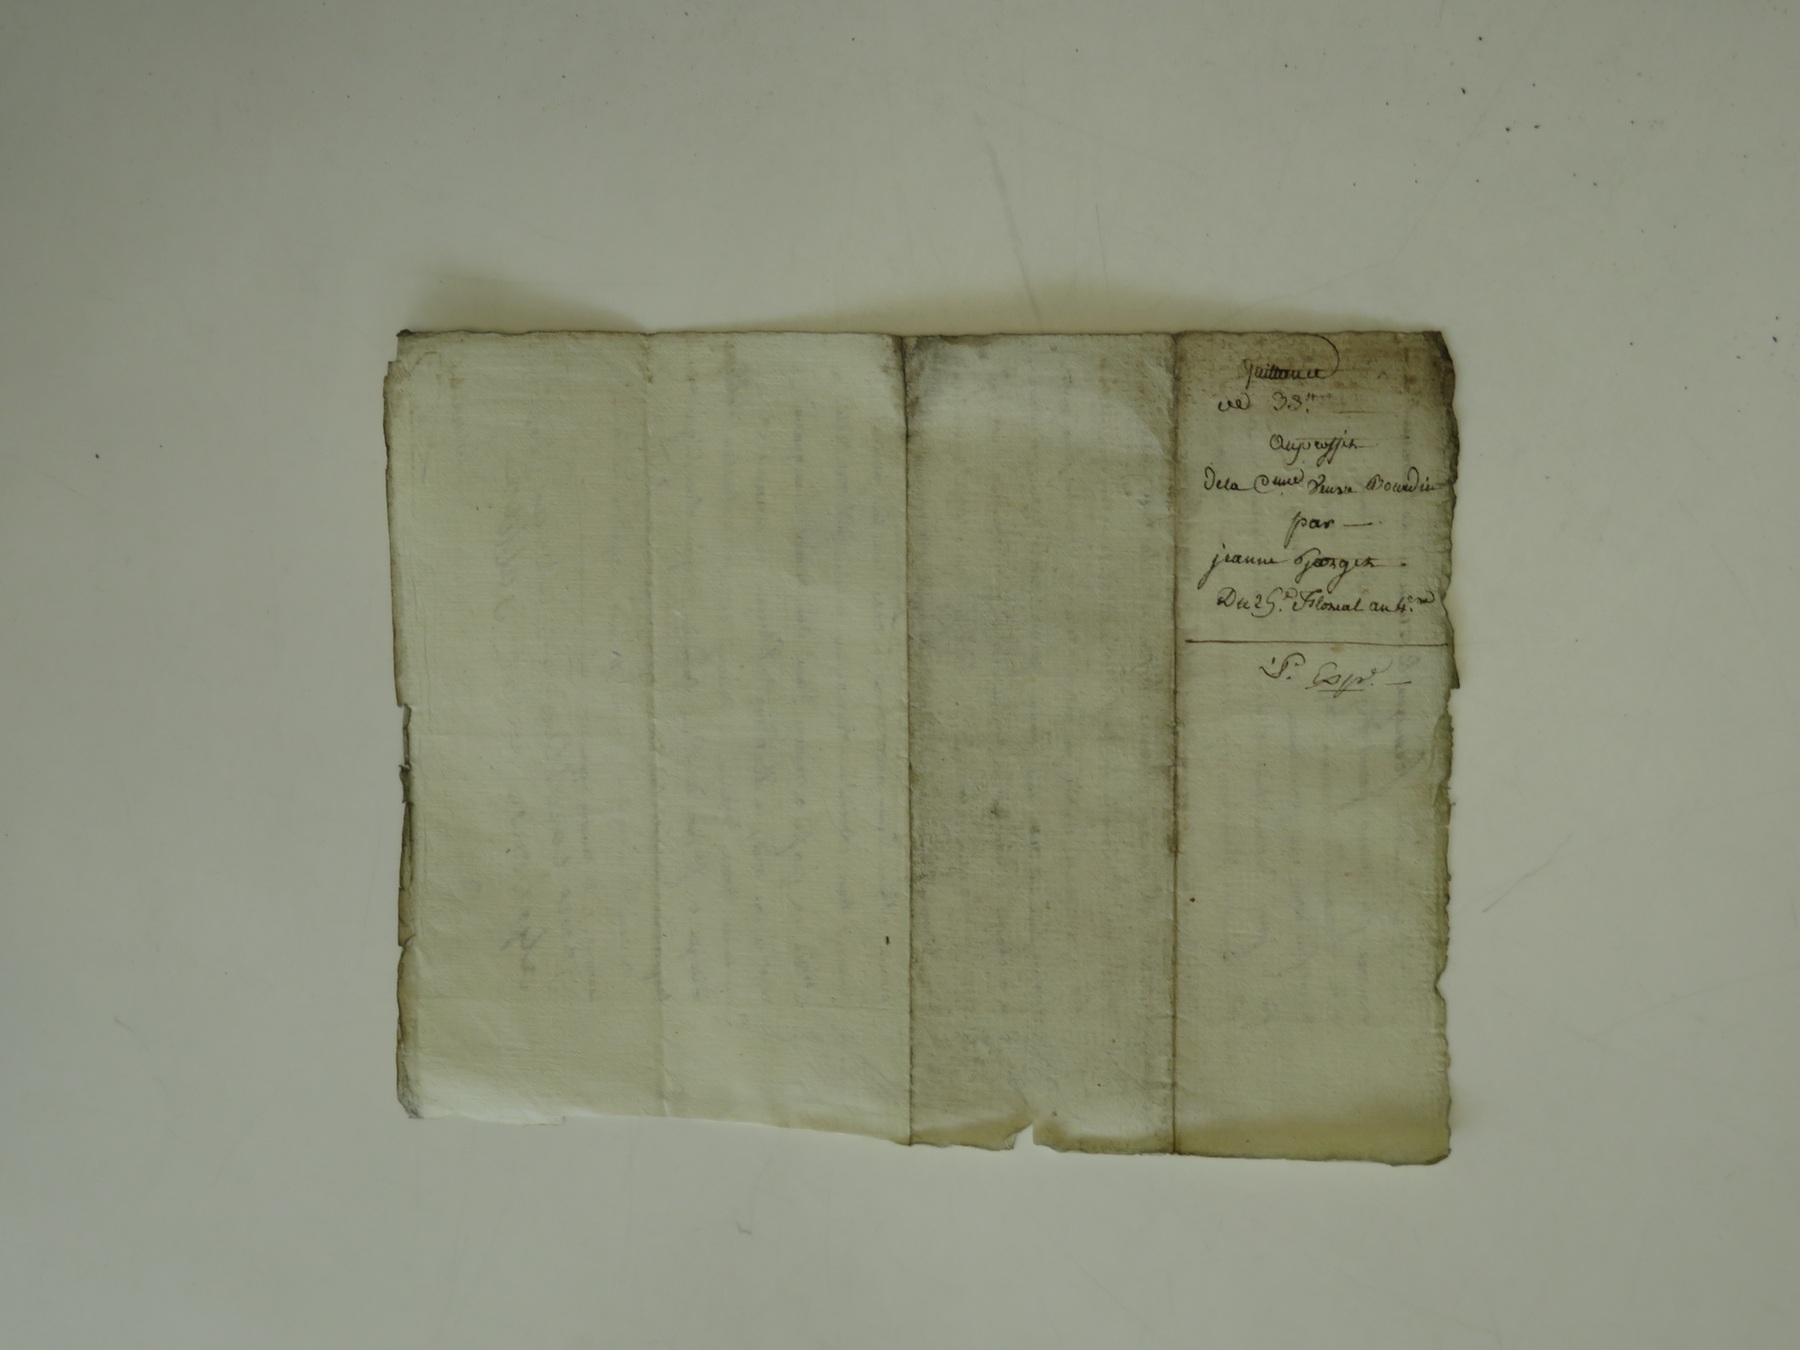 Quittance
de 33.tt
Auproffit
dela Cenne Veuve Bourdin
par
jeanne Georget
Du 25.e Floreal an 4.me
P. Expn.